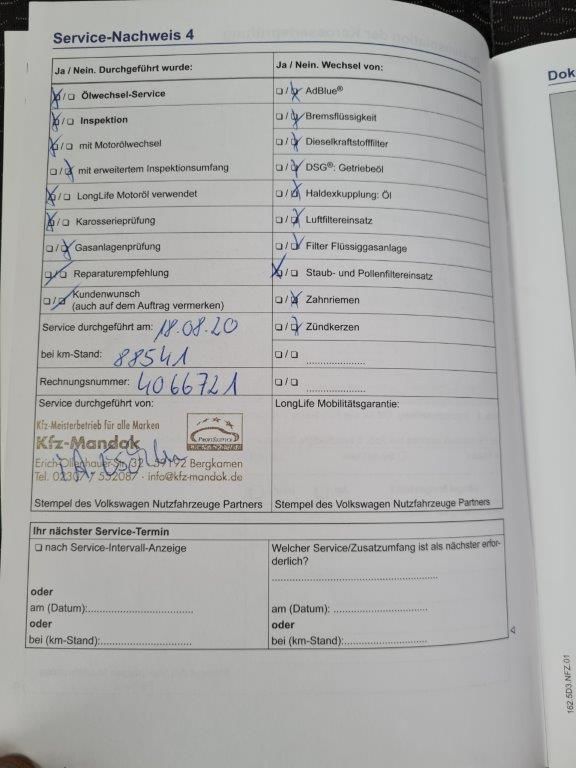 Service-Nachweis 4
Ja / Nein. Durchgeführt wurde:
☒/☐ Ölwechsel-Service
☒/☐ Inspektion
☒/☐ mit Motorölwechsel
☐/☒ mit erweitertem Inspektionsumfang
☒/☐ LongLife Motoröl verwendet
☒/☐ Karosserieprüfung
☐/☒ Gasanlagenprüfung
☐/☐ Reparaturempfehlung
☐/☐ Kundenwunsch
(auch auf dem Auftrag vermerken)
Service durchgeführt am: 18.08.20
bei km-Stand: 88541
Rechnungsnummer: 4066721
Service durchgeführt von:
Kfz-Meisterbetrieb für alle Marken
Kfz-Mandok
Erich-Ollenhauer-Str. 32 · 59192 Bergkamen
Tel. 02307 / 552087 · info@kfz-mandok.de
Stempel des Volkswagen Nutzfahrzeuge Partners
Ja / Nein. Wechsel von:
☐/☒ AdBlue®
☐/☒ Bremsflüssigkeit
☐/☒ Dieselkraftstofffilter
☐/☒ DSG®: Getriebeöl
☐/☒ Haldexkupplung: Öl
☐/☒ Luftfiltereinsatz
☐/☒ Filter Flüssiggasanlage
☒/☐ Staub- und Pollenfiltereinsatz
☐/☒ Zahnriemen
☐/☒ Zündkerzen
☐/☐ ....................
☐/☐ ....................
LongLife Mobilitätsgarantie:
Stempel des Volkswagen Nutzfahrzeuge Partners
Ihr nächster Service-Termin
☐ nach Service-Intervall-Anzeige
oder
am (Datum):................................
oder
bei (km-Stand):............................
Welcher Service/Zusatzumfang ist als nächster erfor-
derlich?
..................................................
am (Datum): ............................
oder
bei (km-Stand):.........................
Dok
162.5D3.NFZ.01